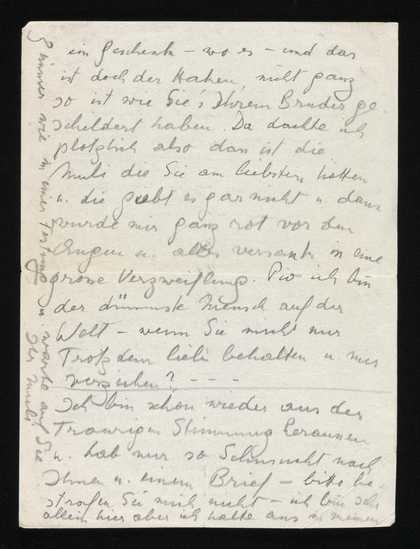 ein Geschenk – wo es – und das
ist doch der Haken nicht ganz
so ist wie Sie's Ihrem Bruder ge
schildert haben. Da dachte ich
plötzlich also das ist die
Mubi die Sie am liebsten hätten
u. die giebt es gar nicht u. dann
wurde mir ganz rot vor den
Augen u. alles versank in eine
grosse Verzweiflung. ich bin
der dümmste Mensch auf der
Welt – wenn Sie mich nur
Trotzdem lieb behalten u. mir
verzeihen? – – –
Ich bin schon wieder aus der
Traurigen Stimmung heraussen
u. hab nur so Sehnsucht nach
Ihnen u. einem Brief – bitte be
strafen Sie mich nicht – ich bin sehr
allein hier aber ich halte aus in meinem
Zimmer wie in einer u. warte auf Sie
Ihr Mubi